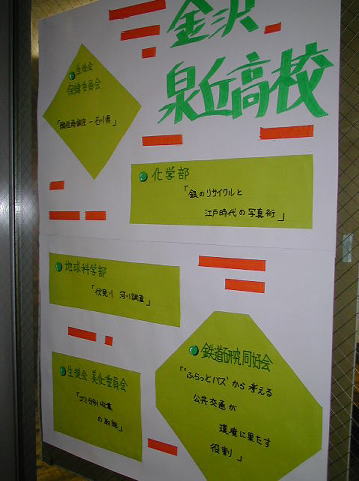 金沢
泉丘高校
生徒会
保健委員会
化学部
「銀のリサイクルと
江戸時代の写真術」
地球科学部
「伏見川 河川調査」
生徒会 美化委員会
「ゴミ分別収集
の取組」
鉄道研究同好会
「"ふらっとバス"から考える
公共交通が
環境に果たす
役割」